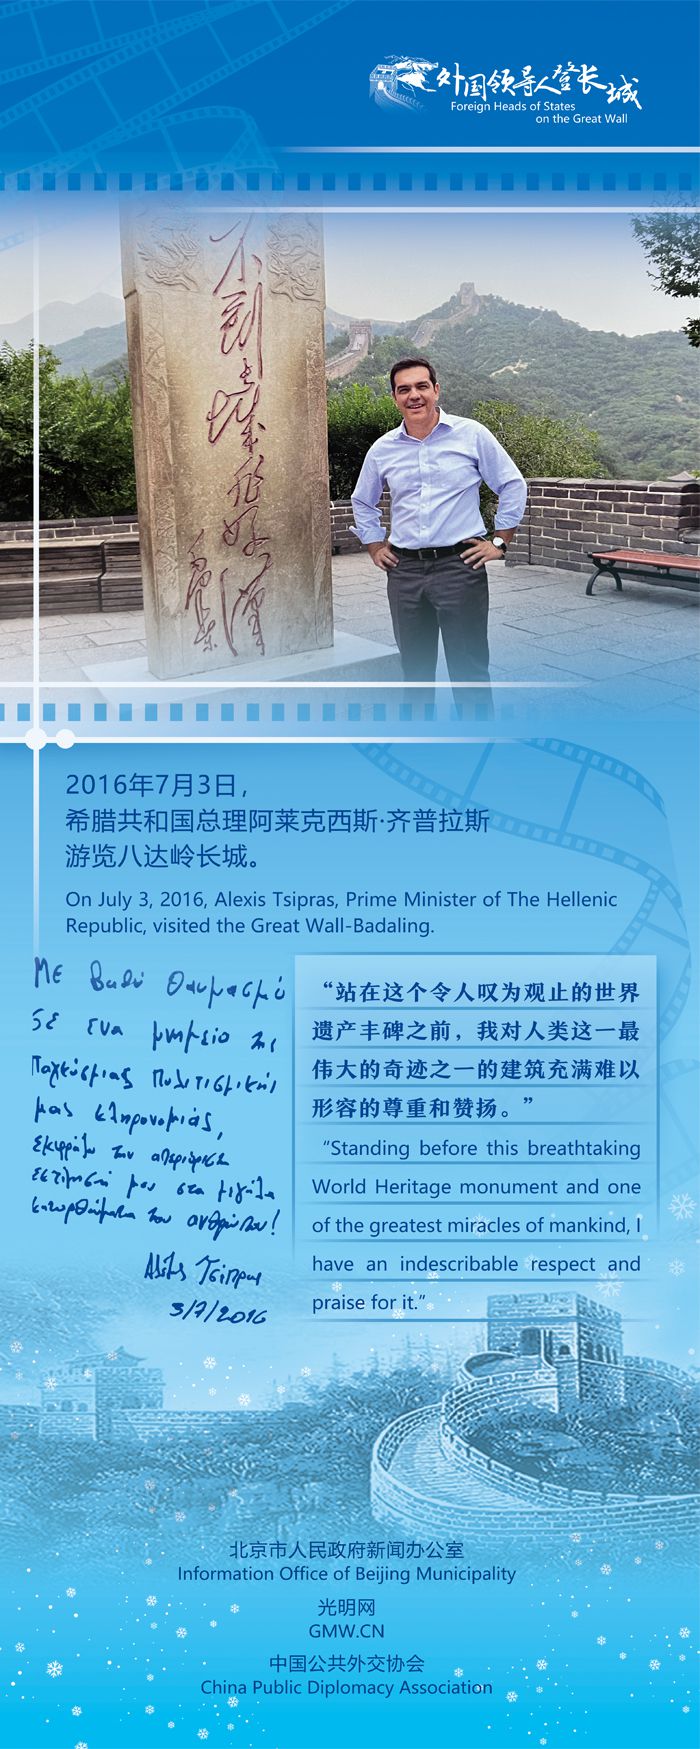 外国领导人登长城
Foreign Heads of States
on the Great Wall
不到长城非好汉
2016年7月3日，
希腊共和国总理阿莱克西斯·齐普拉斯
游览八达岭长城。
On July 3, 2016, Alexis Tsipras, Prime Minister of The Hellenic
Republic, visited the Great Wall-Badaling.
Με βαθύ θαυμασμό
σε ένα μνημείο της
παγκόσμιας πολιτισμικής
μας κληρονομιάς,
εκφράζω την απεριόριστη
εκτίμησή μου στα μεγάλα
κατορθώματα του ανθρώπου!
Αλέξης Τσίπρας
3/7/2016
“站在这个令人叹为观止的世界
遗产丰碑之前，我对人类这一最
伟大的奇迹之一的建筑充满难以
形容的尊重和赞扬。”
“Standing before this breathtaking
World Heritage monument and one
of the greatest miracles of mankind, I
have an indescribable respect and
praise for it.”
北京市人民政府新闻办公室
Information Office of Beijing Municipality
光明网
GMW.CN
中国公共外交协会
China Public Diplomacy Association